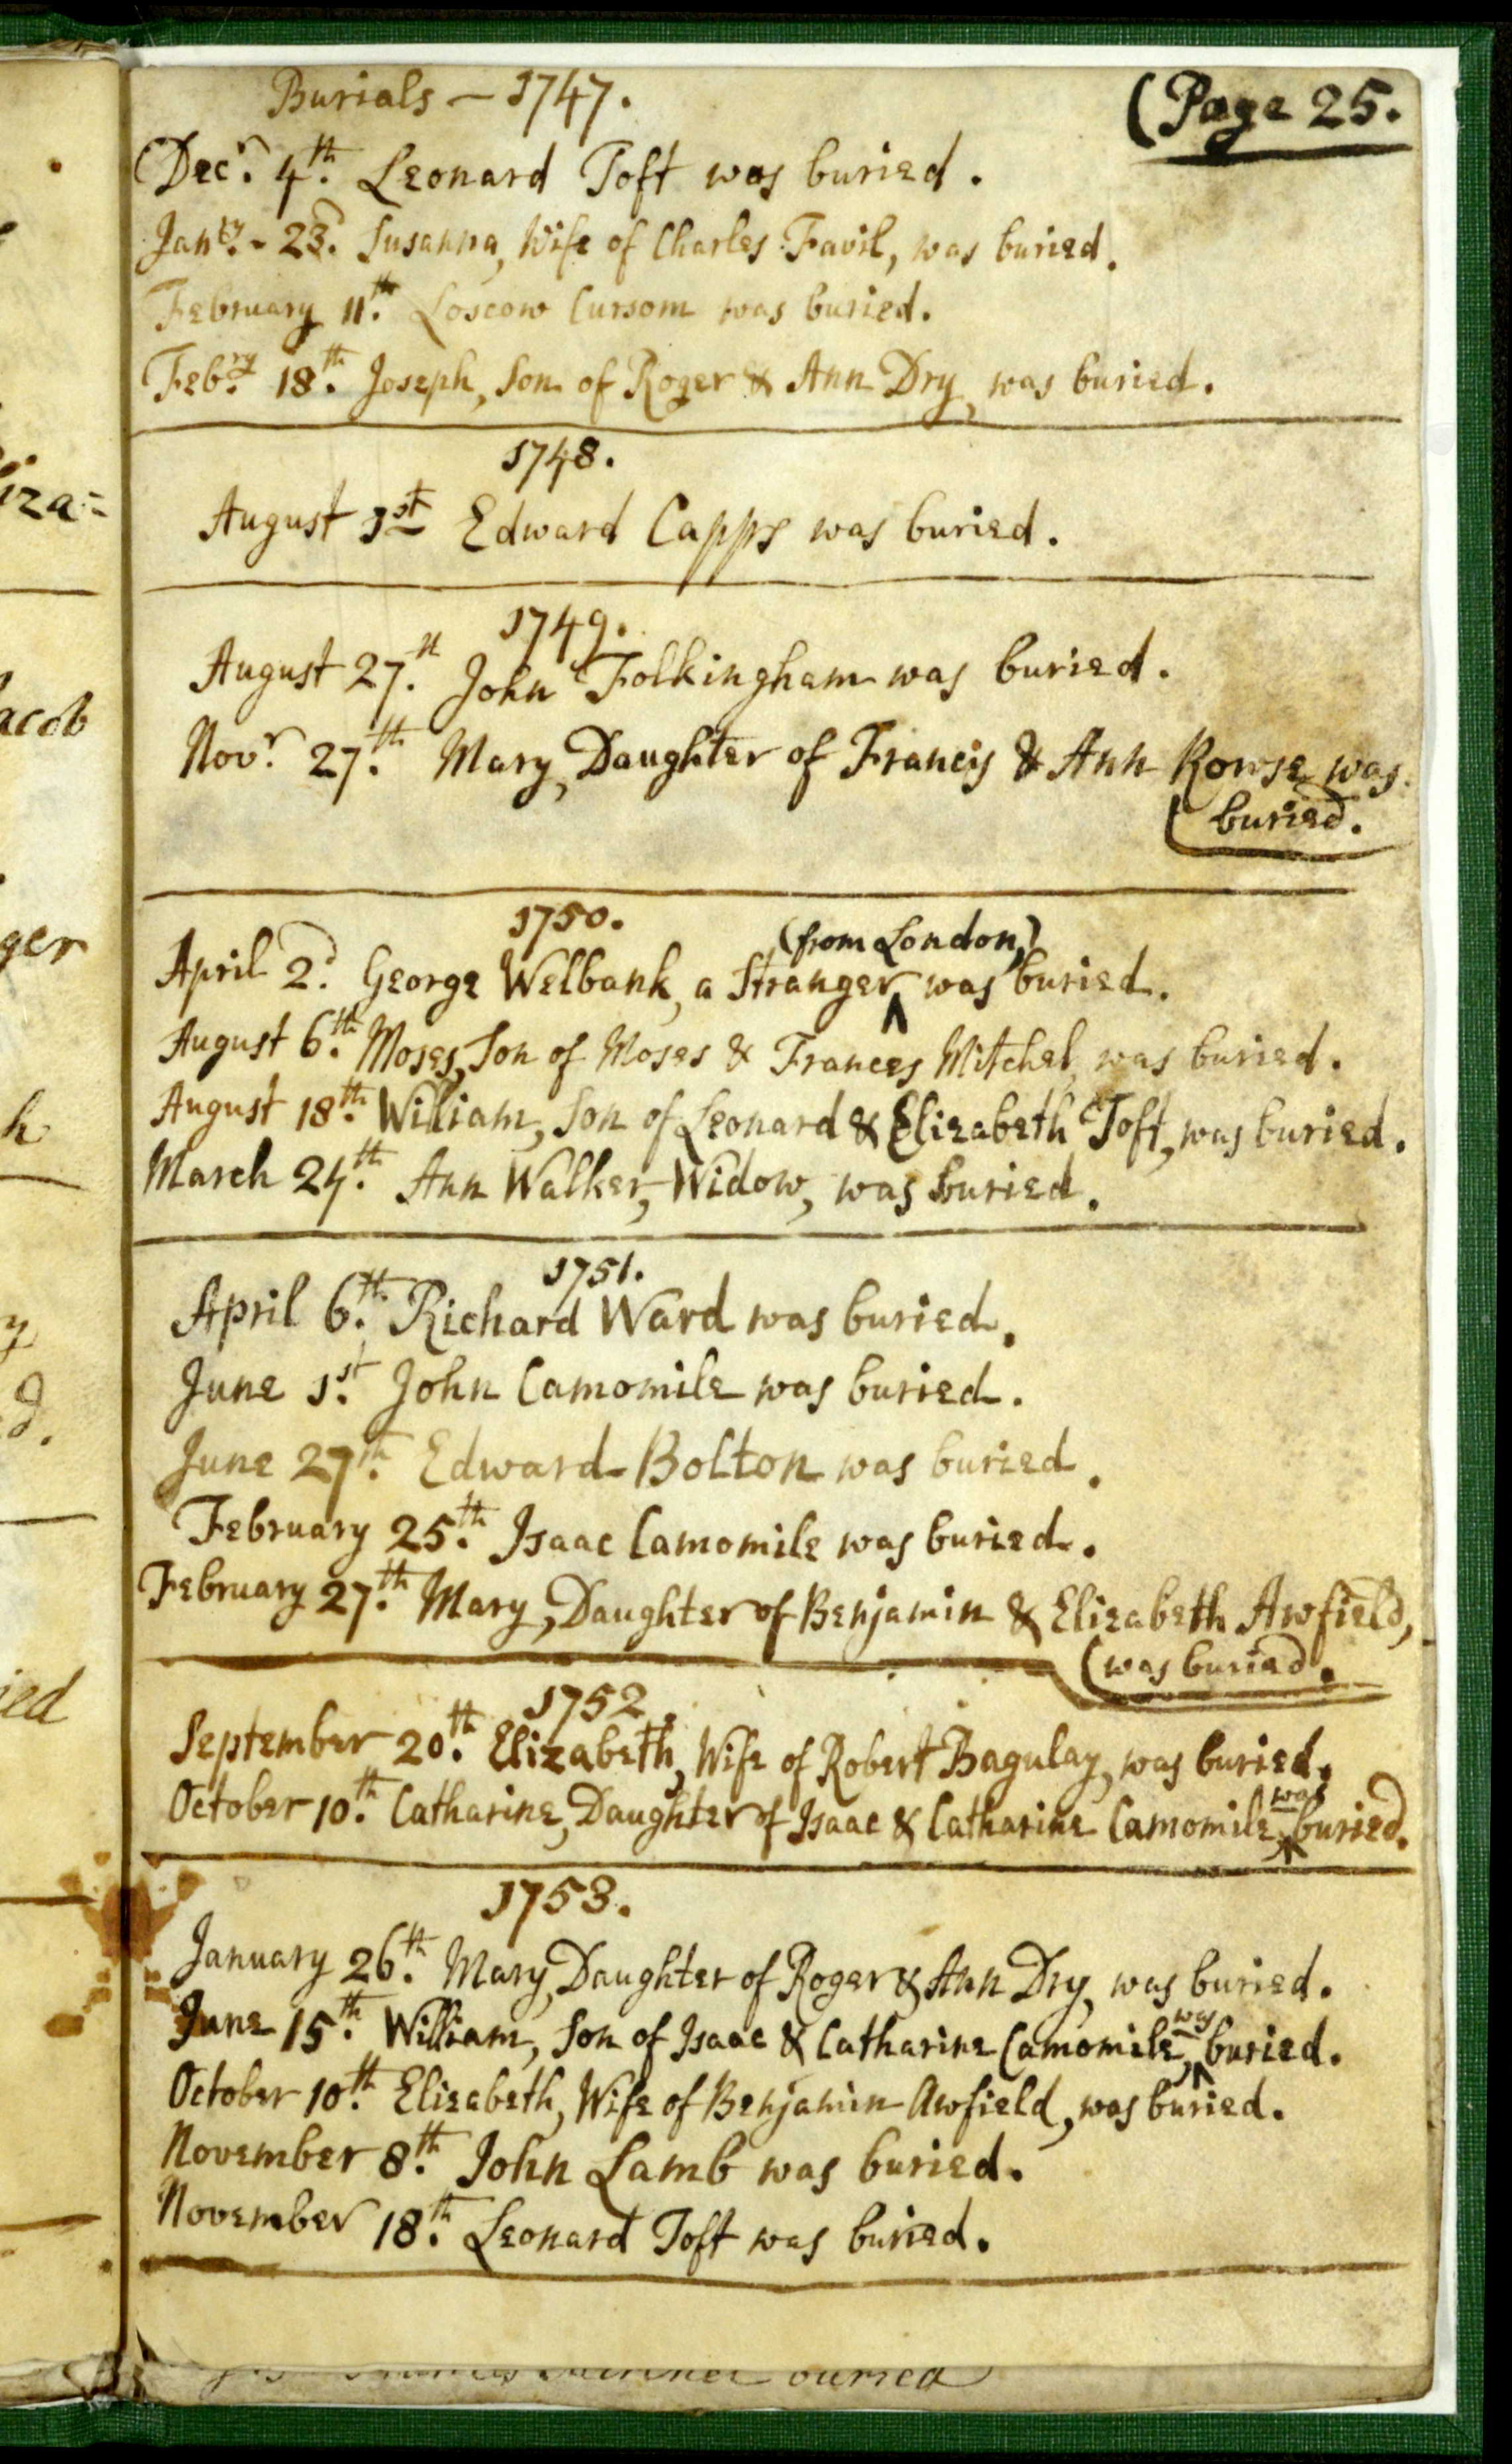 Burials – 1747.
(Page 25.
Decr. 4th. Leonard Toft was buried.
Janry. - 23d. Susanna, Wife of Charles Favil, was buried.
February 11th. Loscow Cursom was buried.
Febry. 18th. Joseph, Son of Roger & Ann Dry, was buried.
1748.
August 1st Edward Capps was buried.
1749.
August 27th. John Folkingham was buried.
Novr. 27th. Mary, Daughter of Francis & Ann Rowse was
(buried.
1750.
(from London,)
April 2d. George Welbank, a Stranger ^ was buried.
August 6th. Moses, Son of Moses & Frances Mitchel, was buried.
August 18th. William, Son of Leonard & Elizabeth Toft, was buried.
March 24th. Ann Walker, Widow, was buried.
1751.
April 6th. Richard Ward was buried.
June 1st. John Camomile was buried.
June 27th. Edward Bolton was buried.
February 25th. Isaac Camomile was buried.
February 27th. Mary, Daughter of Benjamin & Elizabeth Awfield,
(was buried.
1752.
September 20th. Elizabeth, Wife of Robert Bagulay, was buried.
was
October 10th. Catharine, Daughter of Isaac & Catharine Camomile, ^ buried.
1753.
January 26th. Mary, Daughter of Roger & Ann Dry, was buried.
was
June 15th. William, Son of Isaac & Catharine Camomile, ^ buried.
October 10th. Elizabeth, Wife of Benjamin Awfield, was buried.
November 8th. John Lamb was buried.
November 18th. Leonard Toft was buried.
buried